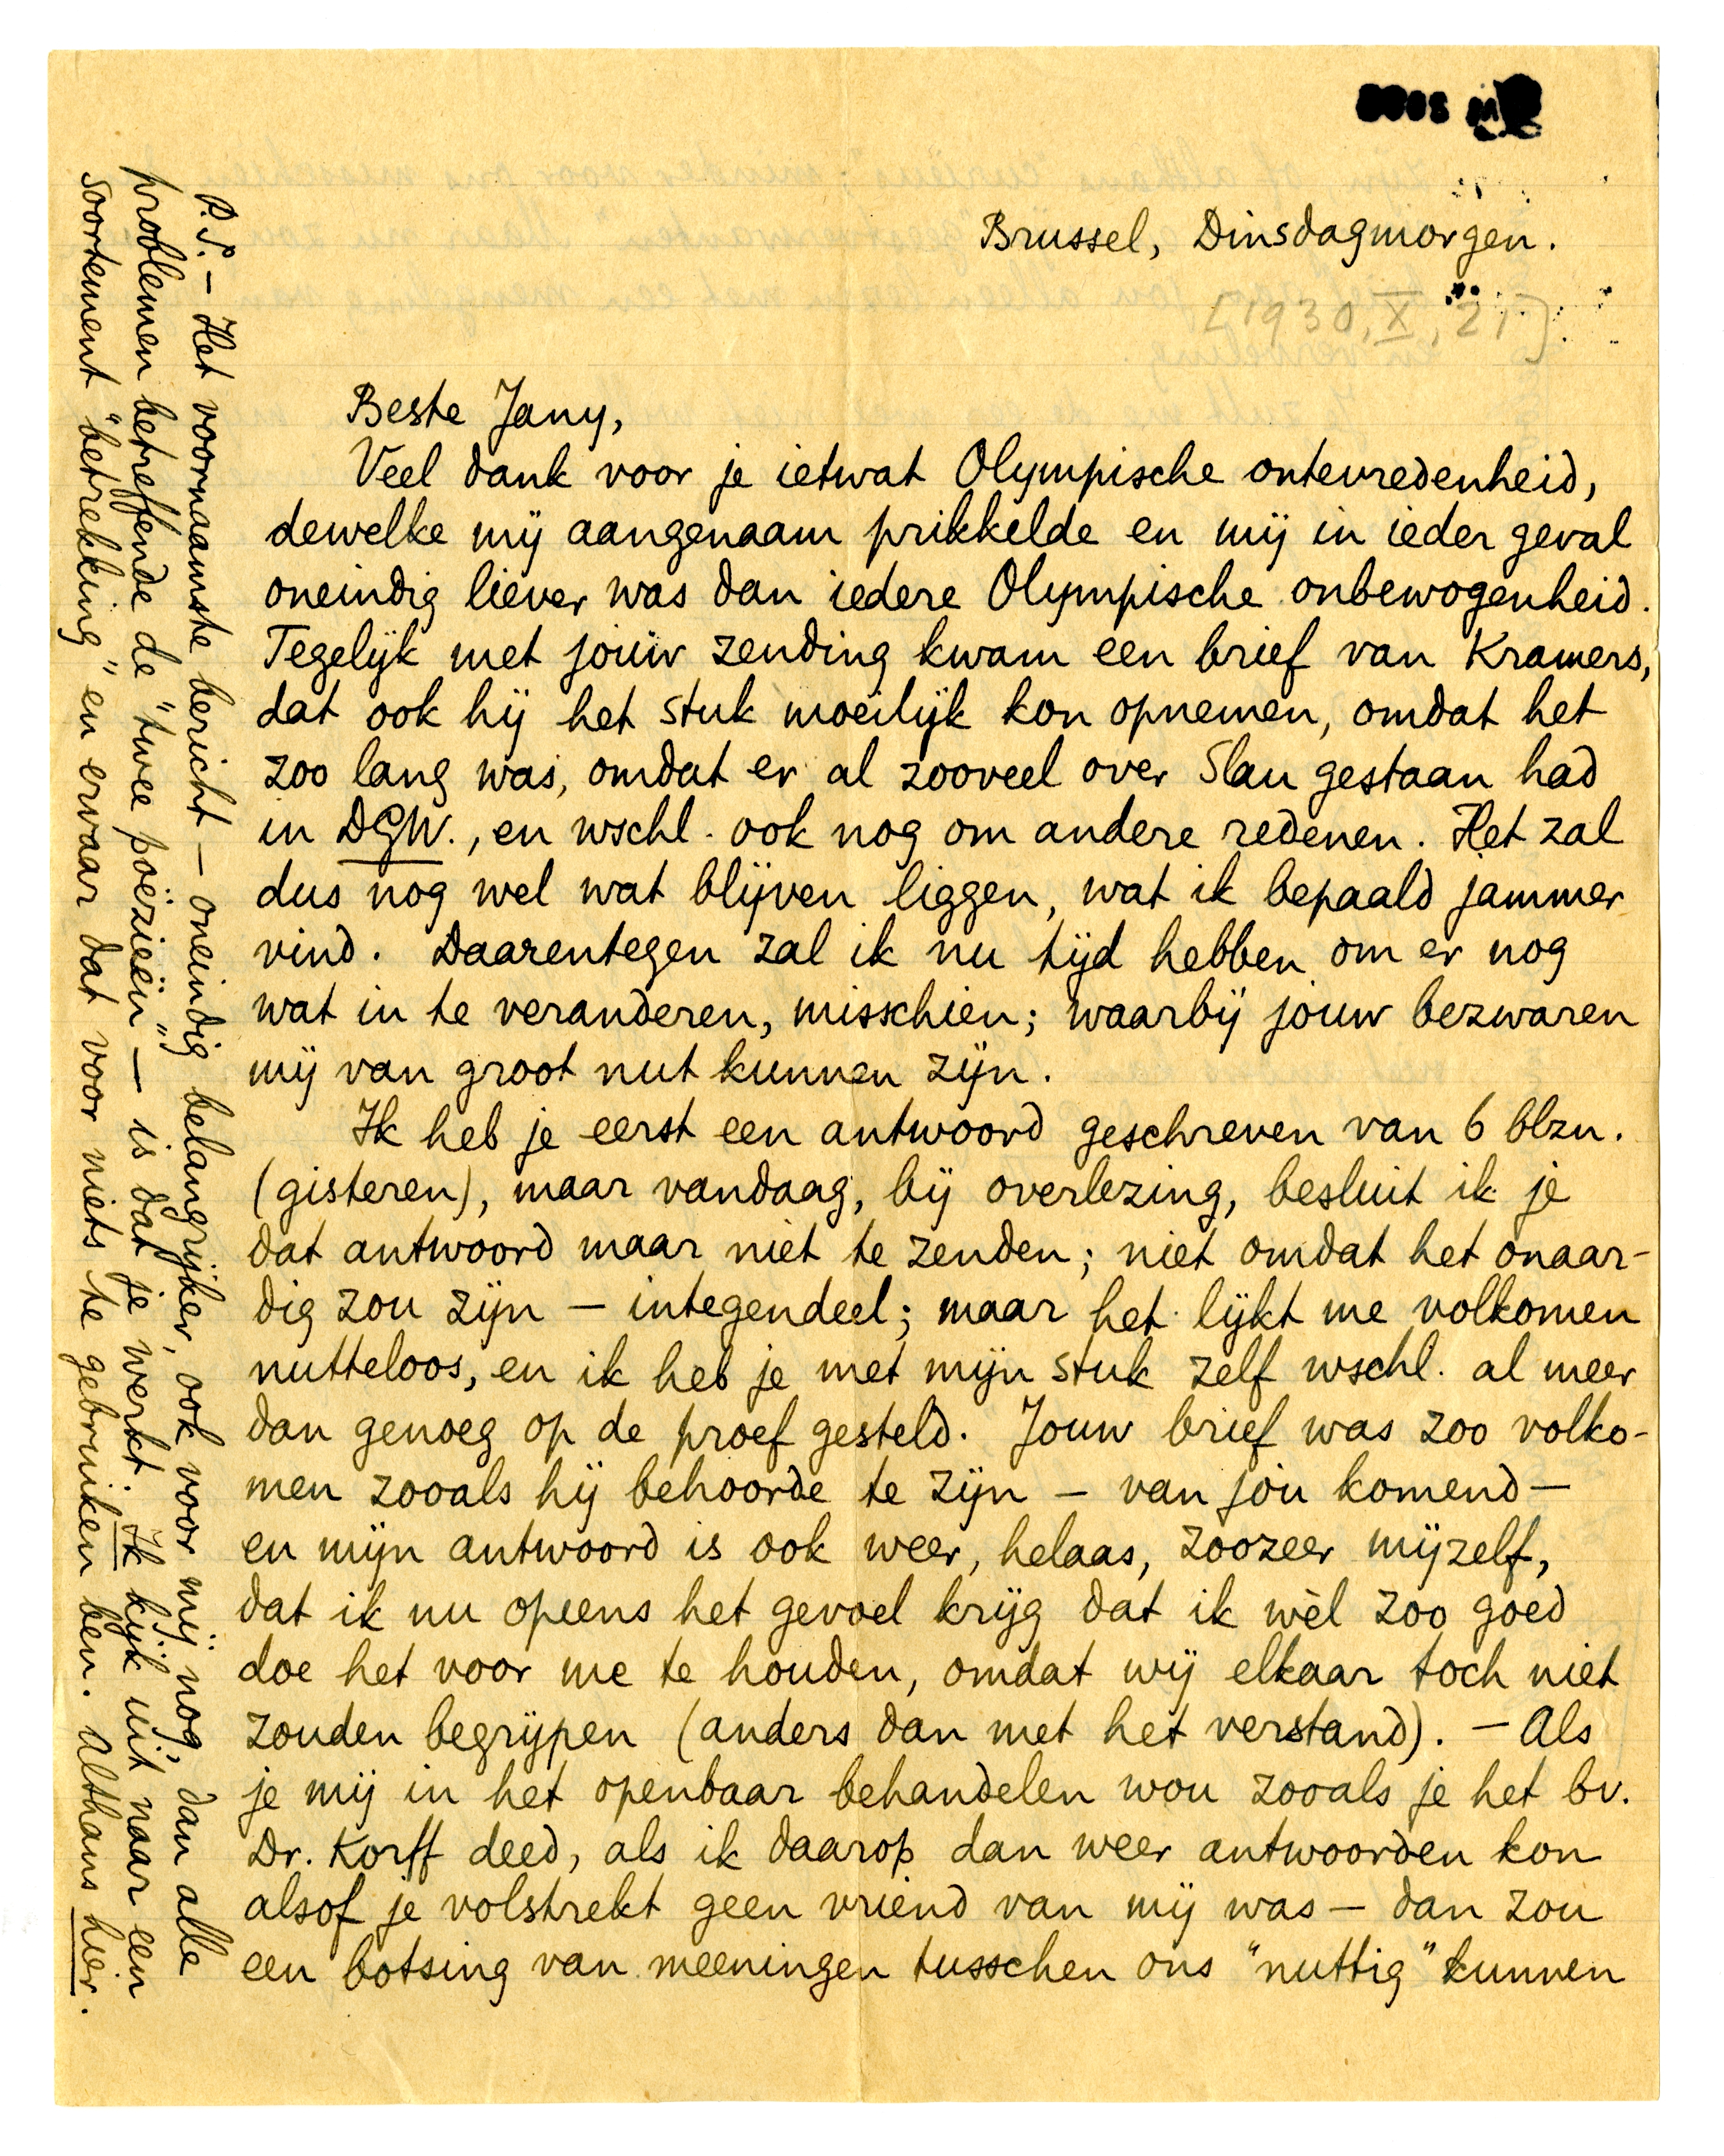 Brussel, Dinsdagmorgen.
[1930, X, 21]
Beste Jany,
Veel dank voor je ietwat Olympische ontevredenheid,
dewelke mij aangenaam prikkelde en mij in ieder geval
oneindig liever was dan iedere Olympische onbewogenheid.
Tegelijk met jouw zending kwam een brief van Kramers,
dat ook hij het stuk moeilijk kon opnemen, omdat het
zoo lang was, omdat er al zooveel over Slau gestaan had
in DGW., en wschl. ook nog om andere redenen. Het zal
dus nog wel wat blijven liggen, wat ik bepaald jammer
vind. Daarentegen zal ik nu tijd hebben om er nog
wat in te veranderen, misschien; waarbij jouw bezwaren
mij van groot nut kunnen zijn.
Ik heb je eerst een antwoord geschreven van 6 blzn.
(gisteren), maar vandaag, bij overlezing, besluit ik je
dat antwoord maar niet te zenden; niet omdat het onaar-
dig zou zijn – integendeel; maar het lijkt me volkomen
nutteloos, en ik heb je met mijn stuk zelf wschl. al meer
dan genoeg op de proef gesteld. Jouw brief was zoo volko-
men zooals hij behoorde te zijn – van jòu komend –
en mijn antwoord is ook weer, helaas, zoozeer mijzelf,
dat ik nu opeens het gevoel krijg dat ik wèl zoo goed
doe het voor me te houden, omdat wij elkaar toch niet
zouden begrijpen (anders dan met het verstand). – Als
je mij in het openbaar behandelen wou zooals je het bv.
Dr. Korff deed, als ik daarop dan weer antwoorden kon
alsof je volstrekt geen vriend van mij was – dan zou
een botsing van meeningen tusschen ons "nuttig" kunnen
P.S. – Het voornaamste bericht – oneindig belangrijker, ook voor mij nog, dan alle
problemen betreffende de "twee poëzieën" – is dat je werkt. Ik kijk uit naar een
soortement "betrekking" en ervaar dat voor niets te gebruiken ben. Althans hier.